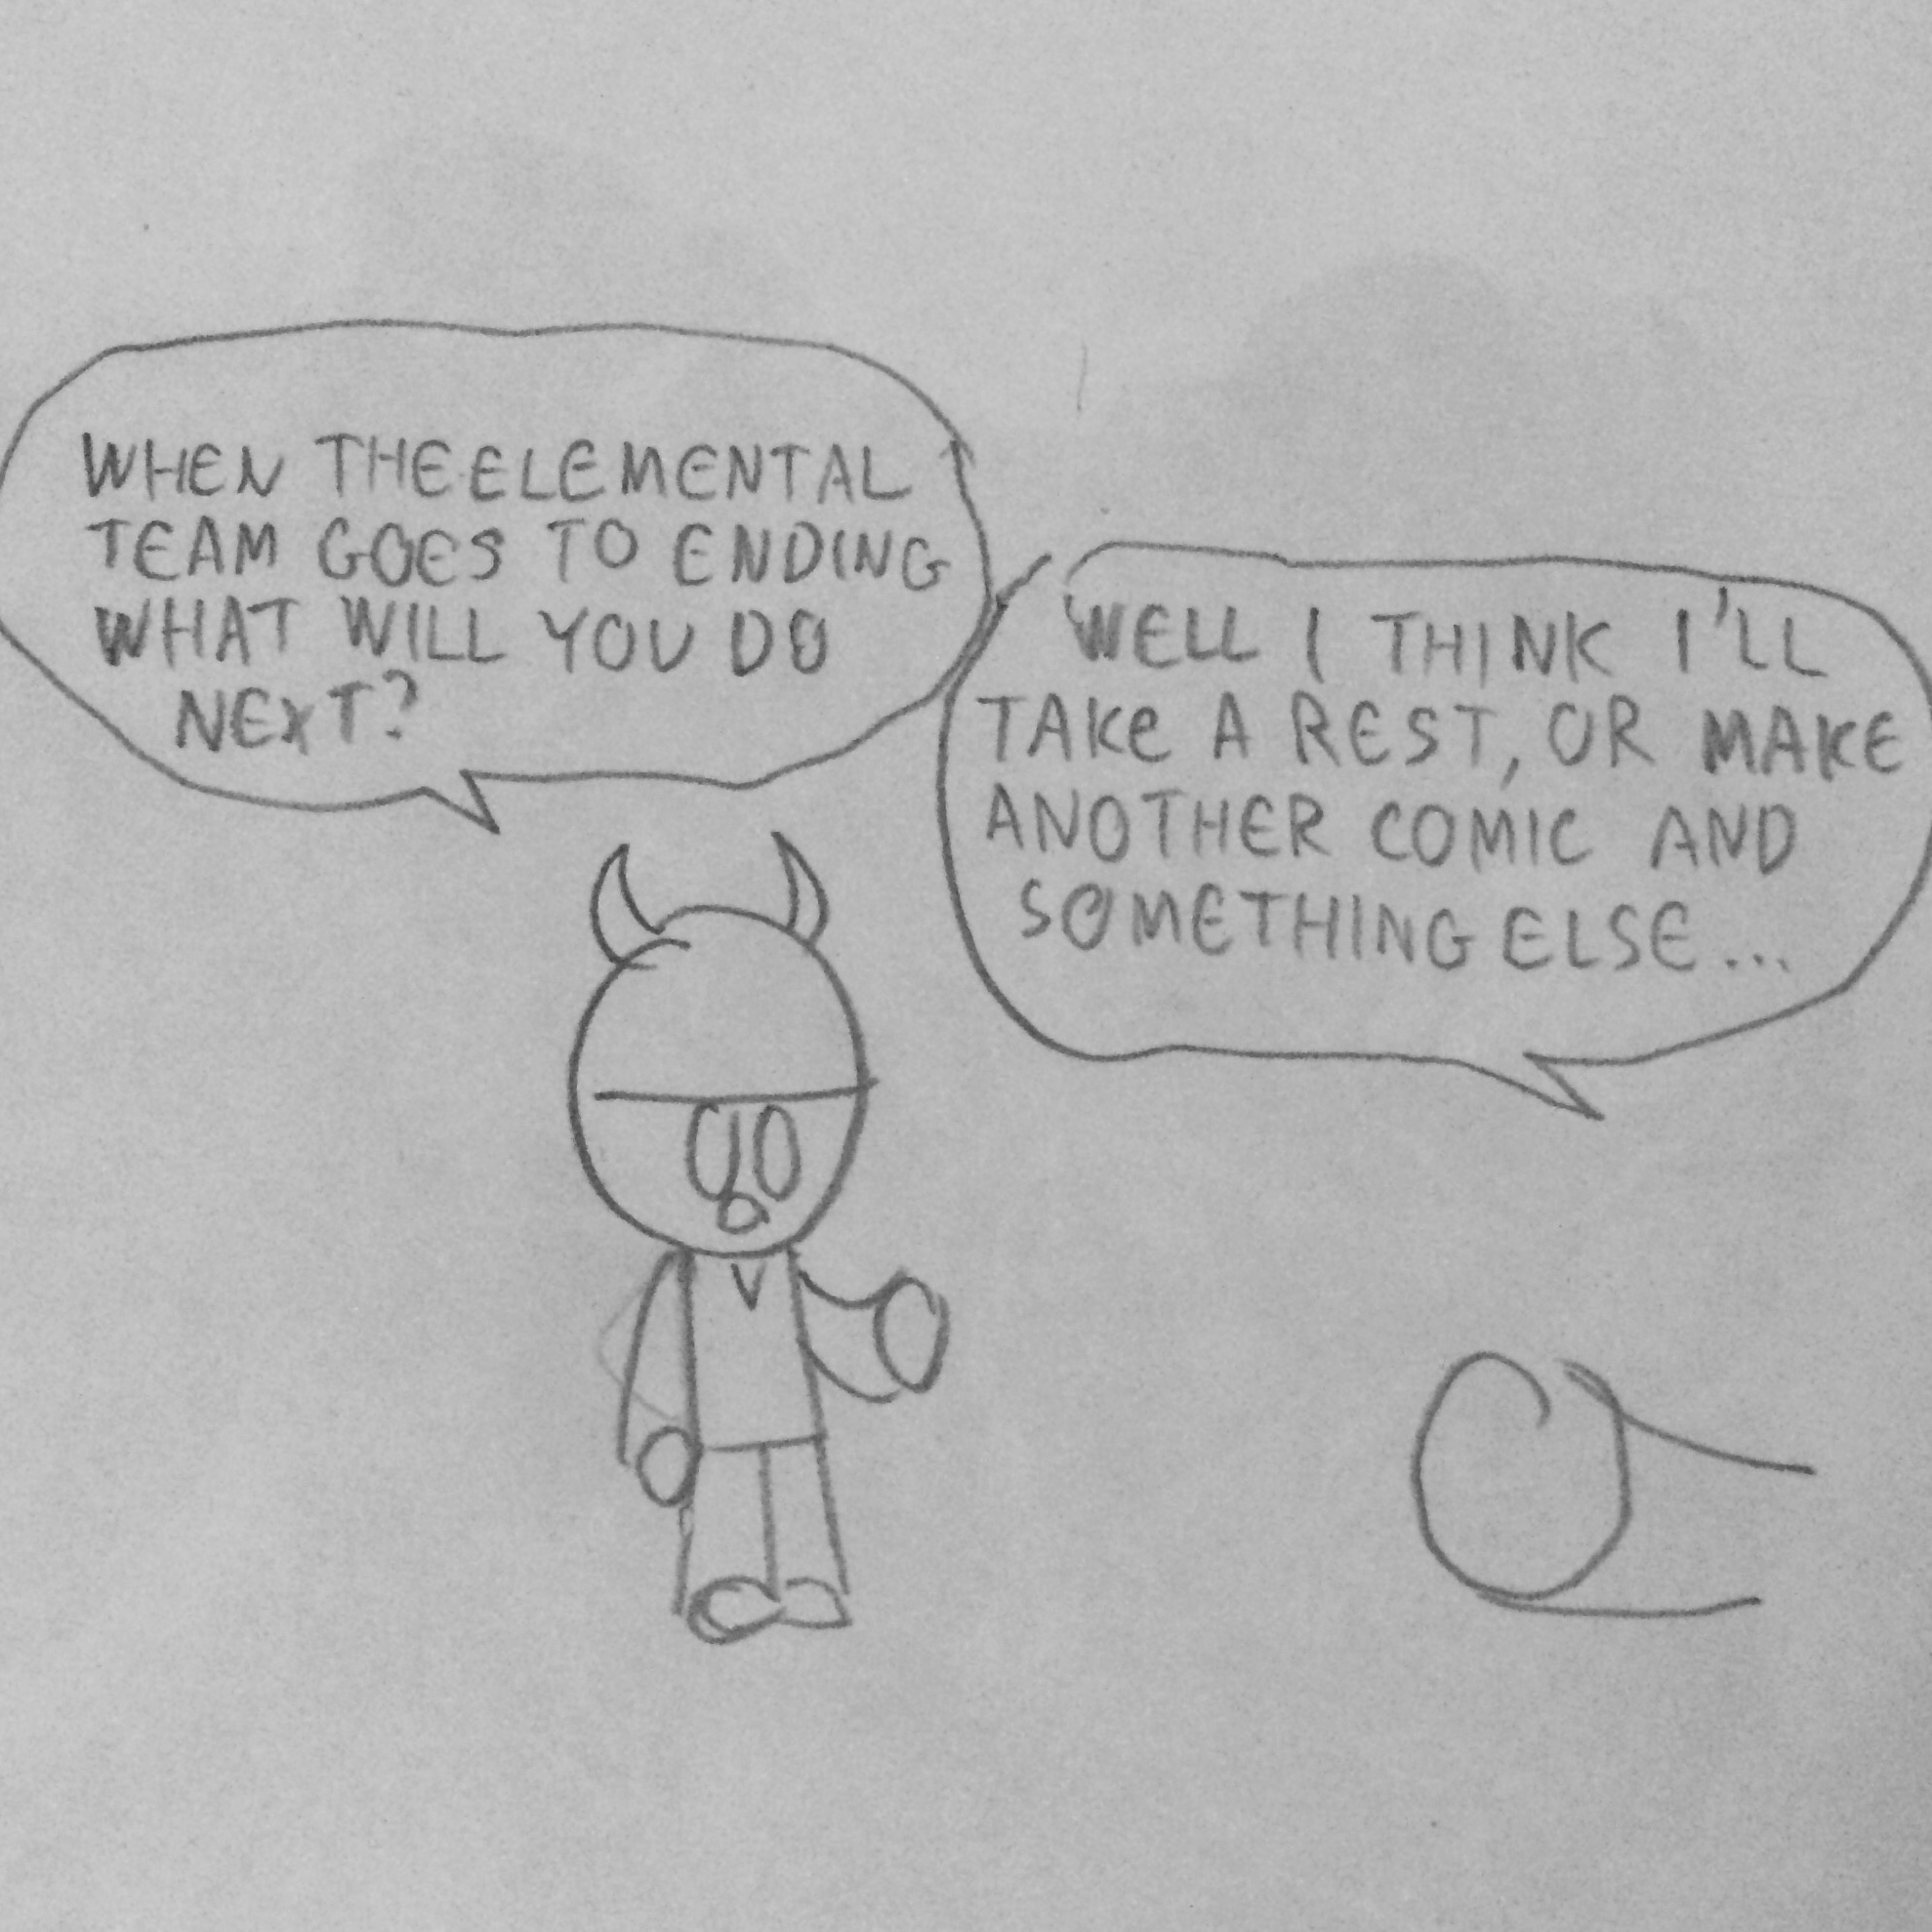 WHEN THE ELEMENTAL
TEAM GOES TO ENDING
WHAT WILL YOU DO
NEXT?
WELL I THINK I'LL
TAKe A REST, OR MAKE
ANOTHER COMIC AND
SOMETHING ELSE...